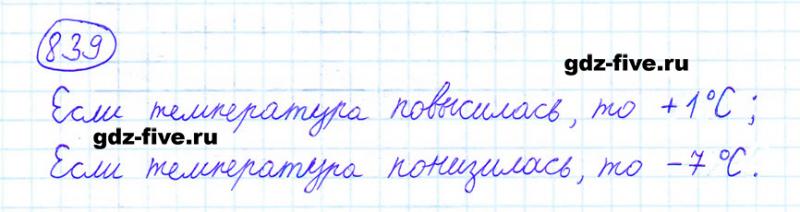 839
gdz-five.ru
Если температура повысилась, то +1°C;
gdz-five.ru
Если температура понизилась, то -7°C.